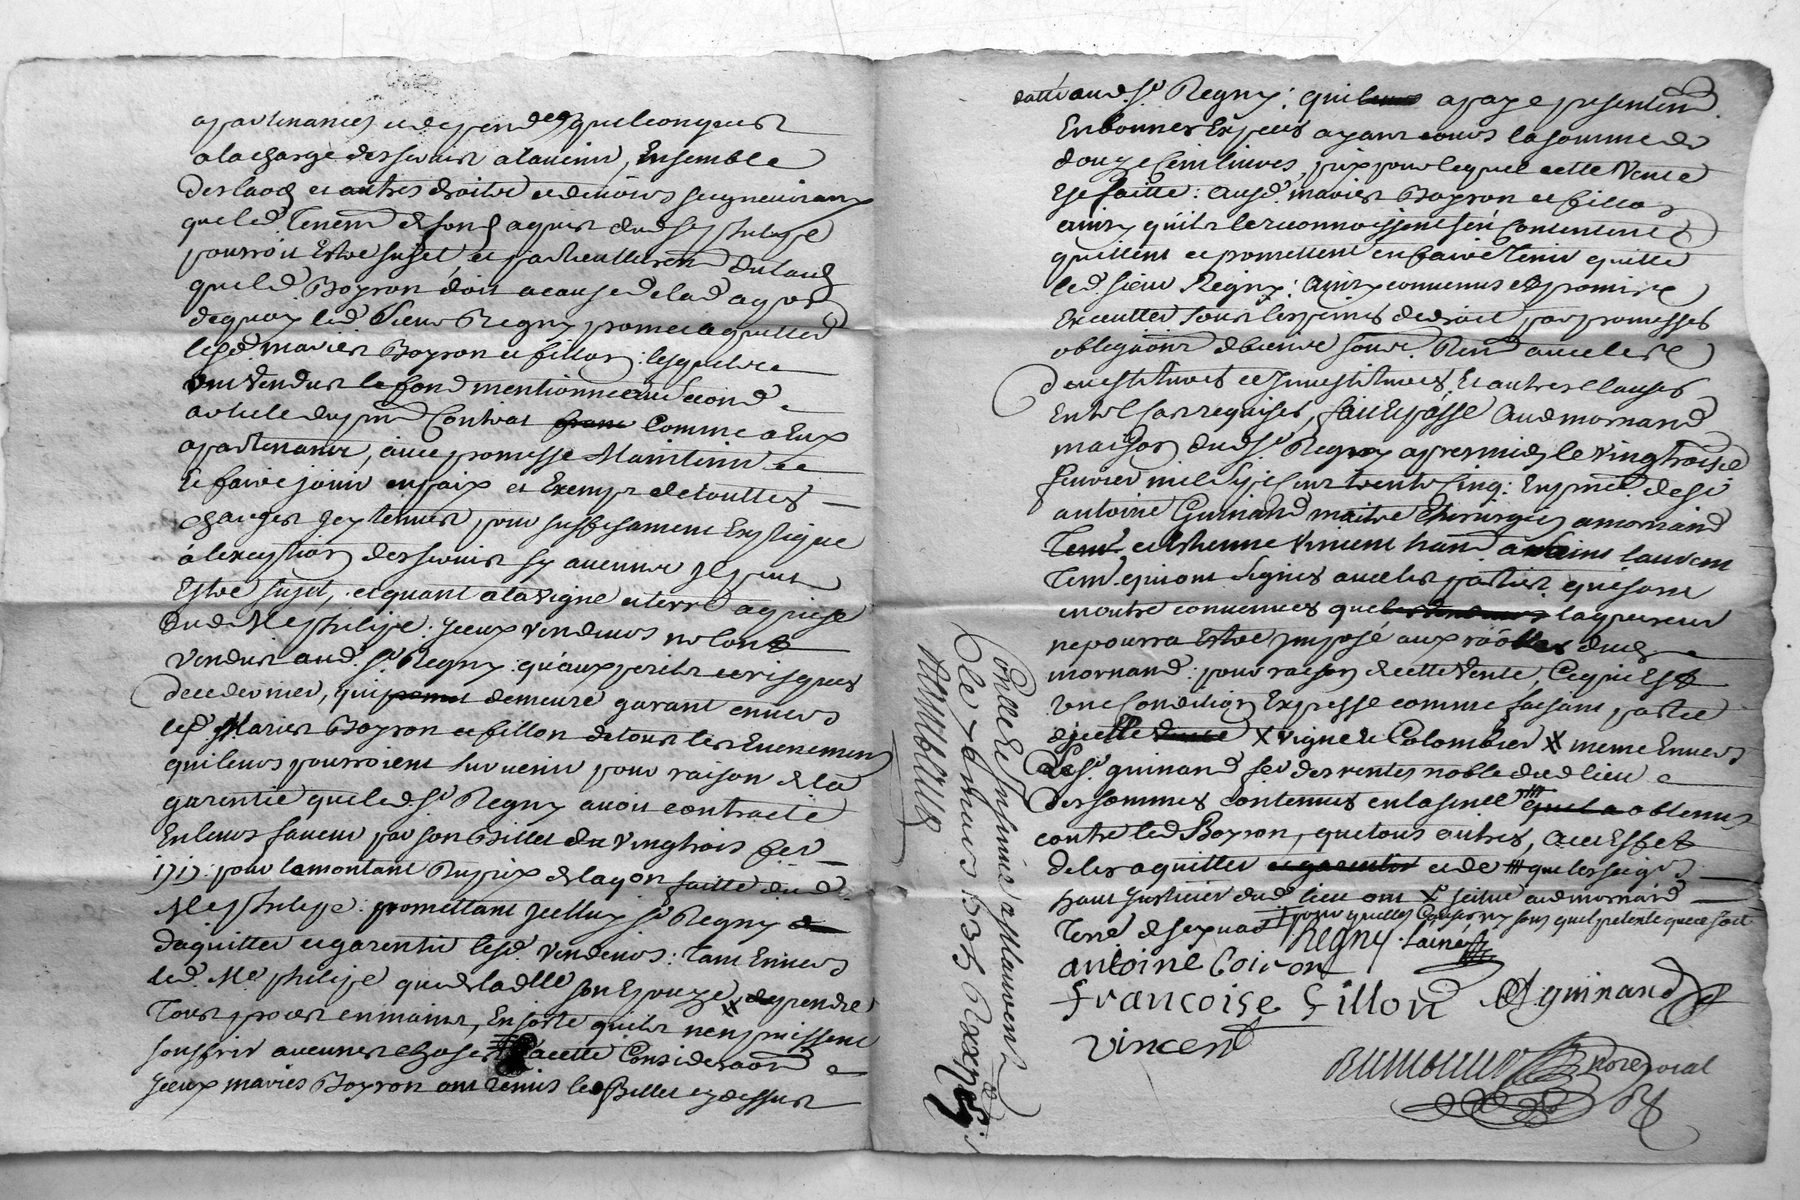 apartenances et dependces quelconques
a la charge des servis a l'avenir, Ensemble
des laods et autres droits et devoirs seigneuriaux
que led. Tenem. & fond aquis dud. Sr philipe
pourroit Estre sujet et particullierem. du laod
que led. Boyron doit a cause de lad. aqon
de quoy led. Sieur Regny promet aquitter
lesd. mariés Boyron et fillon : lesquels
ont vendus le fond mentionné au second
article du pnt Contrat comme a Eux
apartenant, avec promesse Maintenir
Et faire jouir en paix et Exempt de touttes
charges jusques
à l'exception des servis sy aucuns
Estre sujet, et quant a la vigne et terre aquise
dud. Me philipe : yceux vendeurs ne l'ont
vendus aud. Sr Regny qu'aux perils et risques
de ce dernier, qui demeure garant envers
lesd. Mariés Boyron et fillon de tous les Evenemens
qui leurs pourroient survenir pour raison de la
garentie que led. Sr Regny avoit contracté
En leurs faveur par son Billet du vingtrois
1717 : pour le montant du prix de l'aqon faitte dud.
Me philipe : promettant ycelluy Sr Regny
d'aquitter et garentir lesd. vendeurs : Tant Envers
led. Me philipe que de la dlle son Epouze
Tous procès en mains, En sorte qu'ils n'en puissent
souffrir aucunes choses a cette Consideraon
yceux mariés Boyron ont remis led. Billet cy dessus
datté aud. Sr Regny : qui a payé presentem.
En bonnes Especes ayant cours la somme de
douze Cent livres, prix pour lequel cette vente
Est faitte : ausd. mariés Boyron et fillon
ainsy qu'ils le reconnoissent s'en contentent
quittent et promettent en faire Tenir quitte
led. sieur Regny : Ainsy convenus et promis
Executter sous les peines de droit par promesses
obligaons de biens soum. Ren. avec les
devestitures et Investitures Et autres clauses
En tel cas requises, fait Et passé Aud mornand
maison dud. Sr Regny apres midy le vingtroisie
fevrier mil sept cent trente cinq : En pnce. de Sr
antoine Guinand maitre chirurgien a mornand
et Estienne vincent hant. a saint laurent
Tem. qui ont signés avec les parties qui sont
en outre convenues que l'aquereur
ne pourra Estre imposé aux roolles dud.
mornand : pour raison de cette vente, Ce qui Est
une Condition Expresse comme faisant partie
d'ycelle X vigne et Colombier X meme Envers
Led. Sr guinand fer. des rentes noble dud lieu
des sommes contenues en la sence obtenue
contre led. Boyron, que tous autres, avec Effet
de les aquitter et de # que les seigrs
haut justicier dud. lieu ont X située aud mornand
Regny lainé
antoine Coiron
francoise fillon A guinand
vincent
nore. royal
Conllé Et Insinué a St laurent
le fevrier 1735 Recu